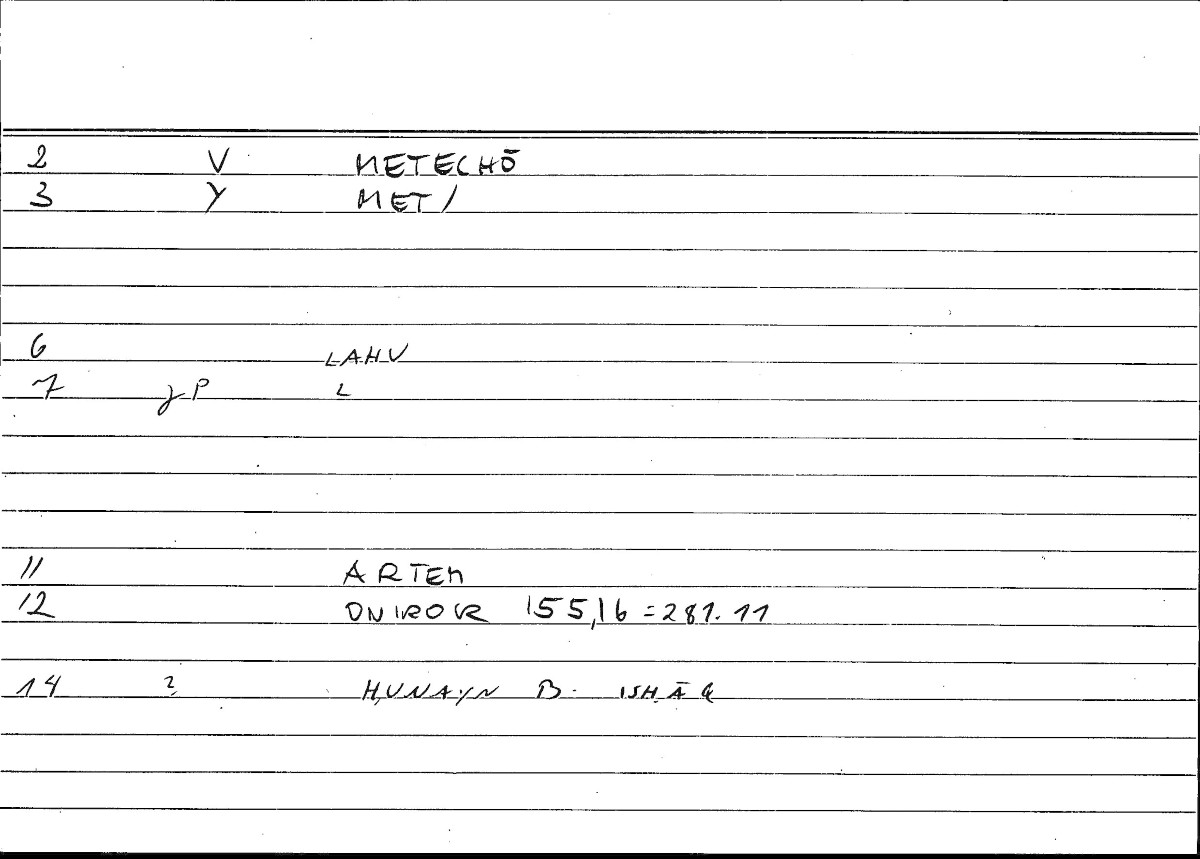 2 V METECHŌ
3 Y MET/
6 LAHU
7 jP L
11 ARTEM
12 ONIROCR 155,16 = 281.11
14 ? ḤUNAYN B. ISḤĀQ